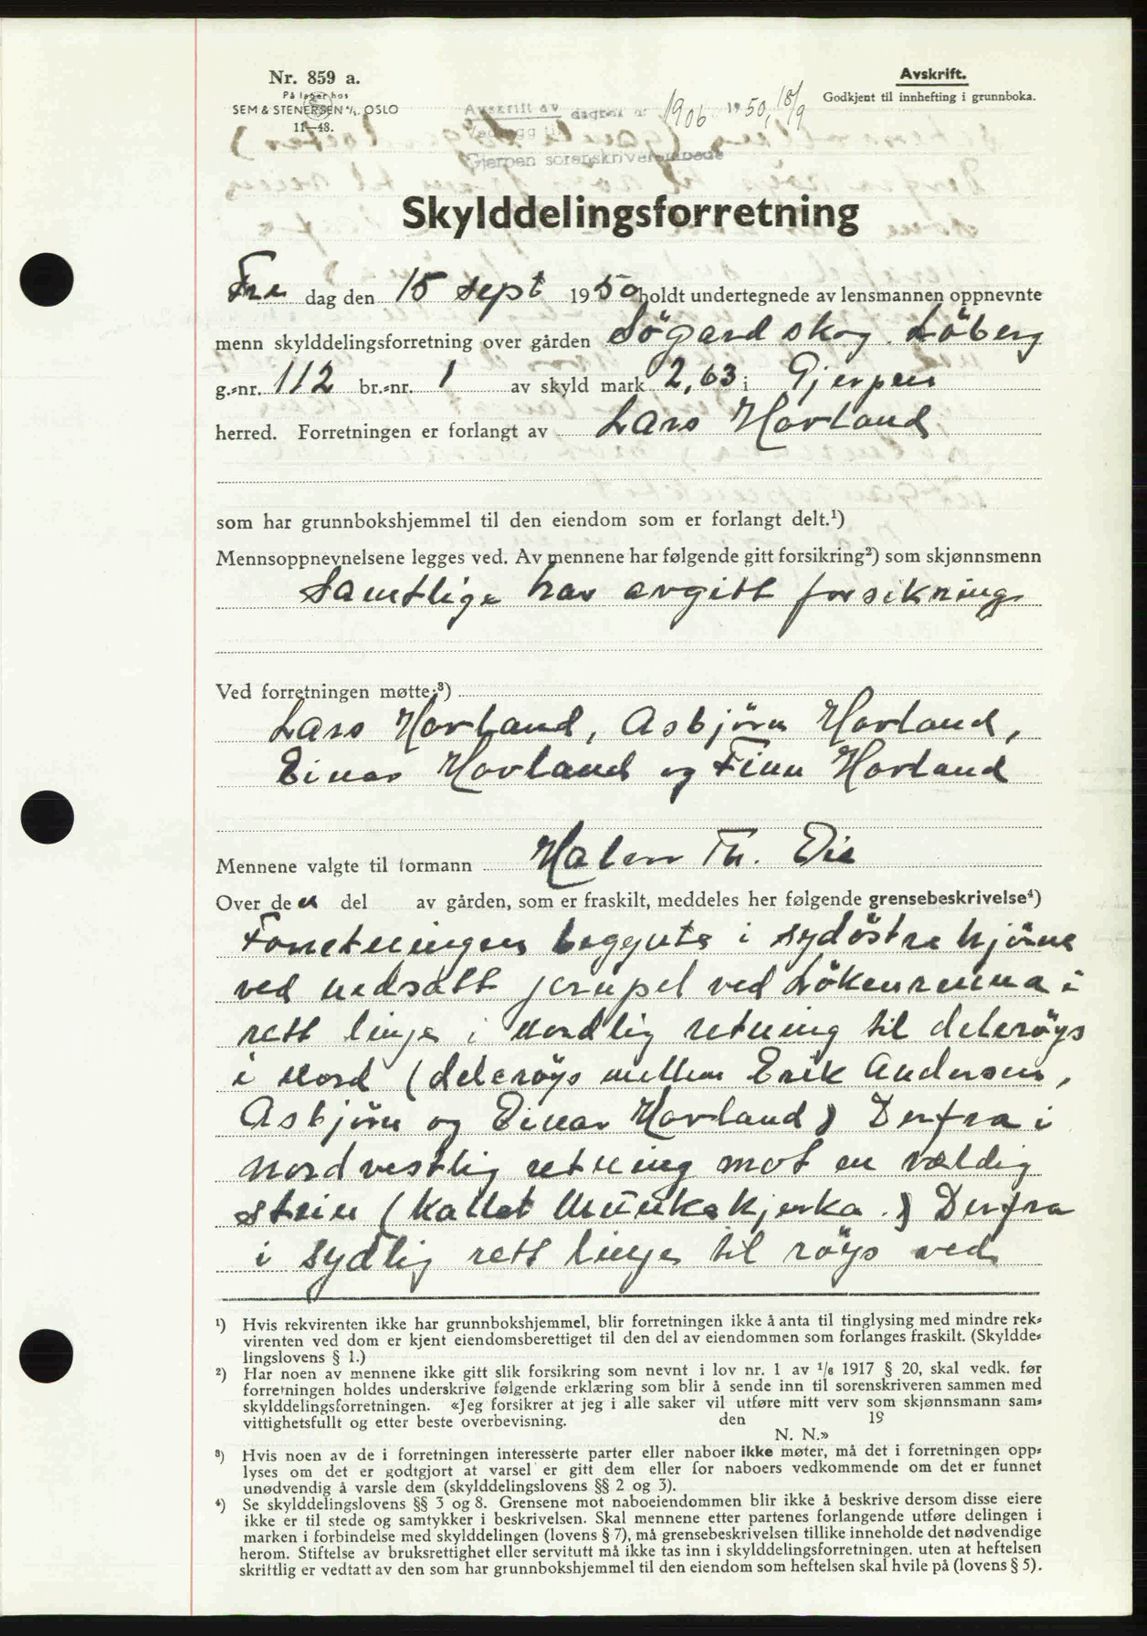 Nr. 859 a.
På lager hos
SEM & STENERSEN A/S, OSLO
11-48.
Avskrift.
Godkjent til innhefting i grunnboka.
Avskrift av dagbok nr 1906 1950, 18/9
Vedlegg til
Gjerpen sorenskriverembede
Skylddelingsforretning
Fre dag den 15 sept 1950 holdt undertegnede av lensmannen oppnevnte
menn skylddelingsforretning over gården Søgard skog. Løberg
g.-nr. 112 br.-nr. 1 av skyld mark 2,63 i Gjerpen
herred. Forretningen er forlangt av Lars Hovland
som har grunnbokshjemmel til den eiendom som er forlangt delt.¹)
Mennsoppnevnelsene legges ved. Av mennene har følgende gitt forsikring²) som skjønnsmenn
Samtlige har avgitt forsikring
Ved forretningen møtte:³)
Lars Hovland, Asbjörn Hovland,
Einar Hovland og Finn Hovland
Mennene valgte til formann Halvor Th. Oie
Over den del av gården, som er fraskilt, meddeles her følgende grensebeskrivelse⁴)
Forretningen begynte i sydöstre hjörne
ved nedsatt jernpel ved Lökenrenna i
rett linje i nordlig retning til deleröys
i Nord (deleröys mellem Erik Andersen,
Asbjörn og Einar Hovland) Derfra i
nordvestlig retning mot en vældig
stein (kallet Munkekjerka.) Derfra
i sydlig rett linje til röys ved
¹) Hvis rekvirenten ikke har grunnbokshjemmel, blir forretningen ikke å anta til tinglysing med mindre rek-
virenten ved dom er kjent eiendomsberettiget til den del av eiendommen som forlanges fraskilt. (Skyldde-
lingslovens § 1.)
²) Har noen av mennene ikke gitt slik forsikring som nevnt i lov nr. 1 av 1/6 1917 § 20, skal vedk. før
forretningen holdes underskrive følgende erklæring som blir å sende inn til sorenskriveren sammen med
skylddelingsforretningen. «Jeg forsikrer at jeg i alle saker vil utføre mitt verv som skjønnsmann sam-
vittighetsfullt og etter beste overbevisning. den 19
N. N.»
³) Hvis noen av de i forretningen interesserte parter eller naboer ikke møter, må det i forretningen opp-
lyses om det er godtgjort at varsel er gitt dem eller for naboers vedkommende om det er funnet
unødvendig å varsle dem (skylddelingslovens §§ 2 og 3).
⁴) Se skylddelingslovens §§ 3 og 8. Grensene mot naboeiendommen blir ikke å beskrive dersom disse eiere
ikke er til stede og samtykker i beskrivelsen. Skal mennene etter partenes forlangende utføre delingen i
marken i forbindelse med skylddelingen (lovens § 7), må grensebeskrivelsen tillike inneholde det nødvendige
herom. Stiftelse av bruksrettighet eller servitutt må ikke tas inn i skylddelingsforretningen, uten at heftelsen
skriftlig er vedtatt av den som har grunnbokshjemmel til den eiendom som heftelsen skal hvile på (lovens § 5).